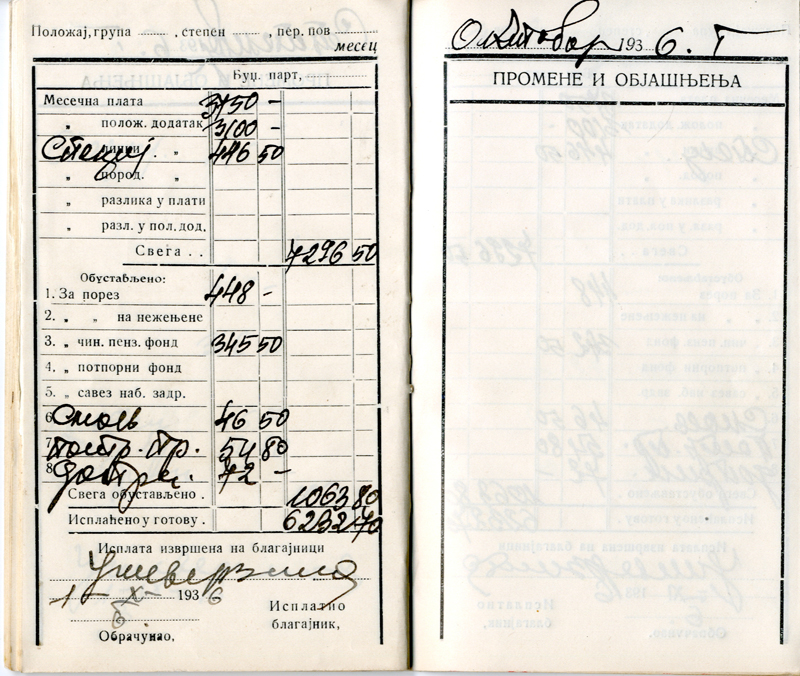 Положај, група , степен , пер. пов
месец
Буџ. парт,
Месечна плата 3150 -
„ полож. додатак 3100 -
„ „ 446 50
„ пород. „
„ разлика у плати
„ разл. у пол. дод.
Свега . . 7296 50
Обустављено:
1. За порез 448 -
2. „ „ на нежењене
3. „ чин. пенз. фонд 345 50
4. „ потпорни фонд
5. „ савез наб. задр.
6 46 50
7 54 80
8 72 -
Свега обустављено . 1063 80
Исплаћено у готову . 6232 70
Исплата извршена на благајници
1 - XI - 193 6
Исплатио
благајник,
Обрачунао,
Октовар 193 6. Г
ПРОМЕНЕ И ОБЈАШЊЕЊА